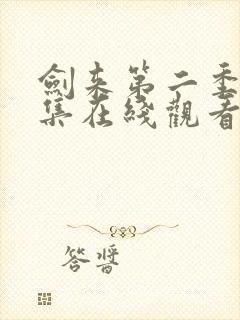 劍来第二季
集在綫觀看
答醬